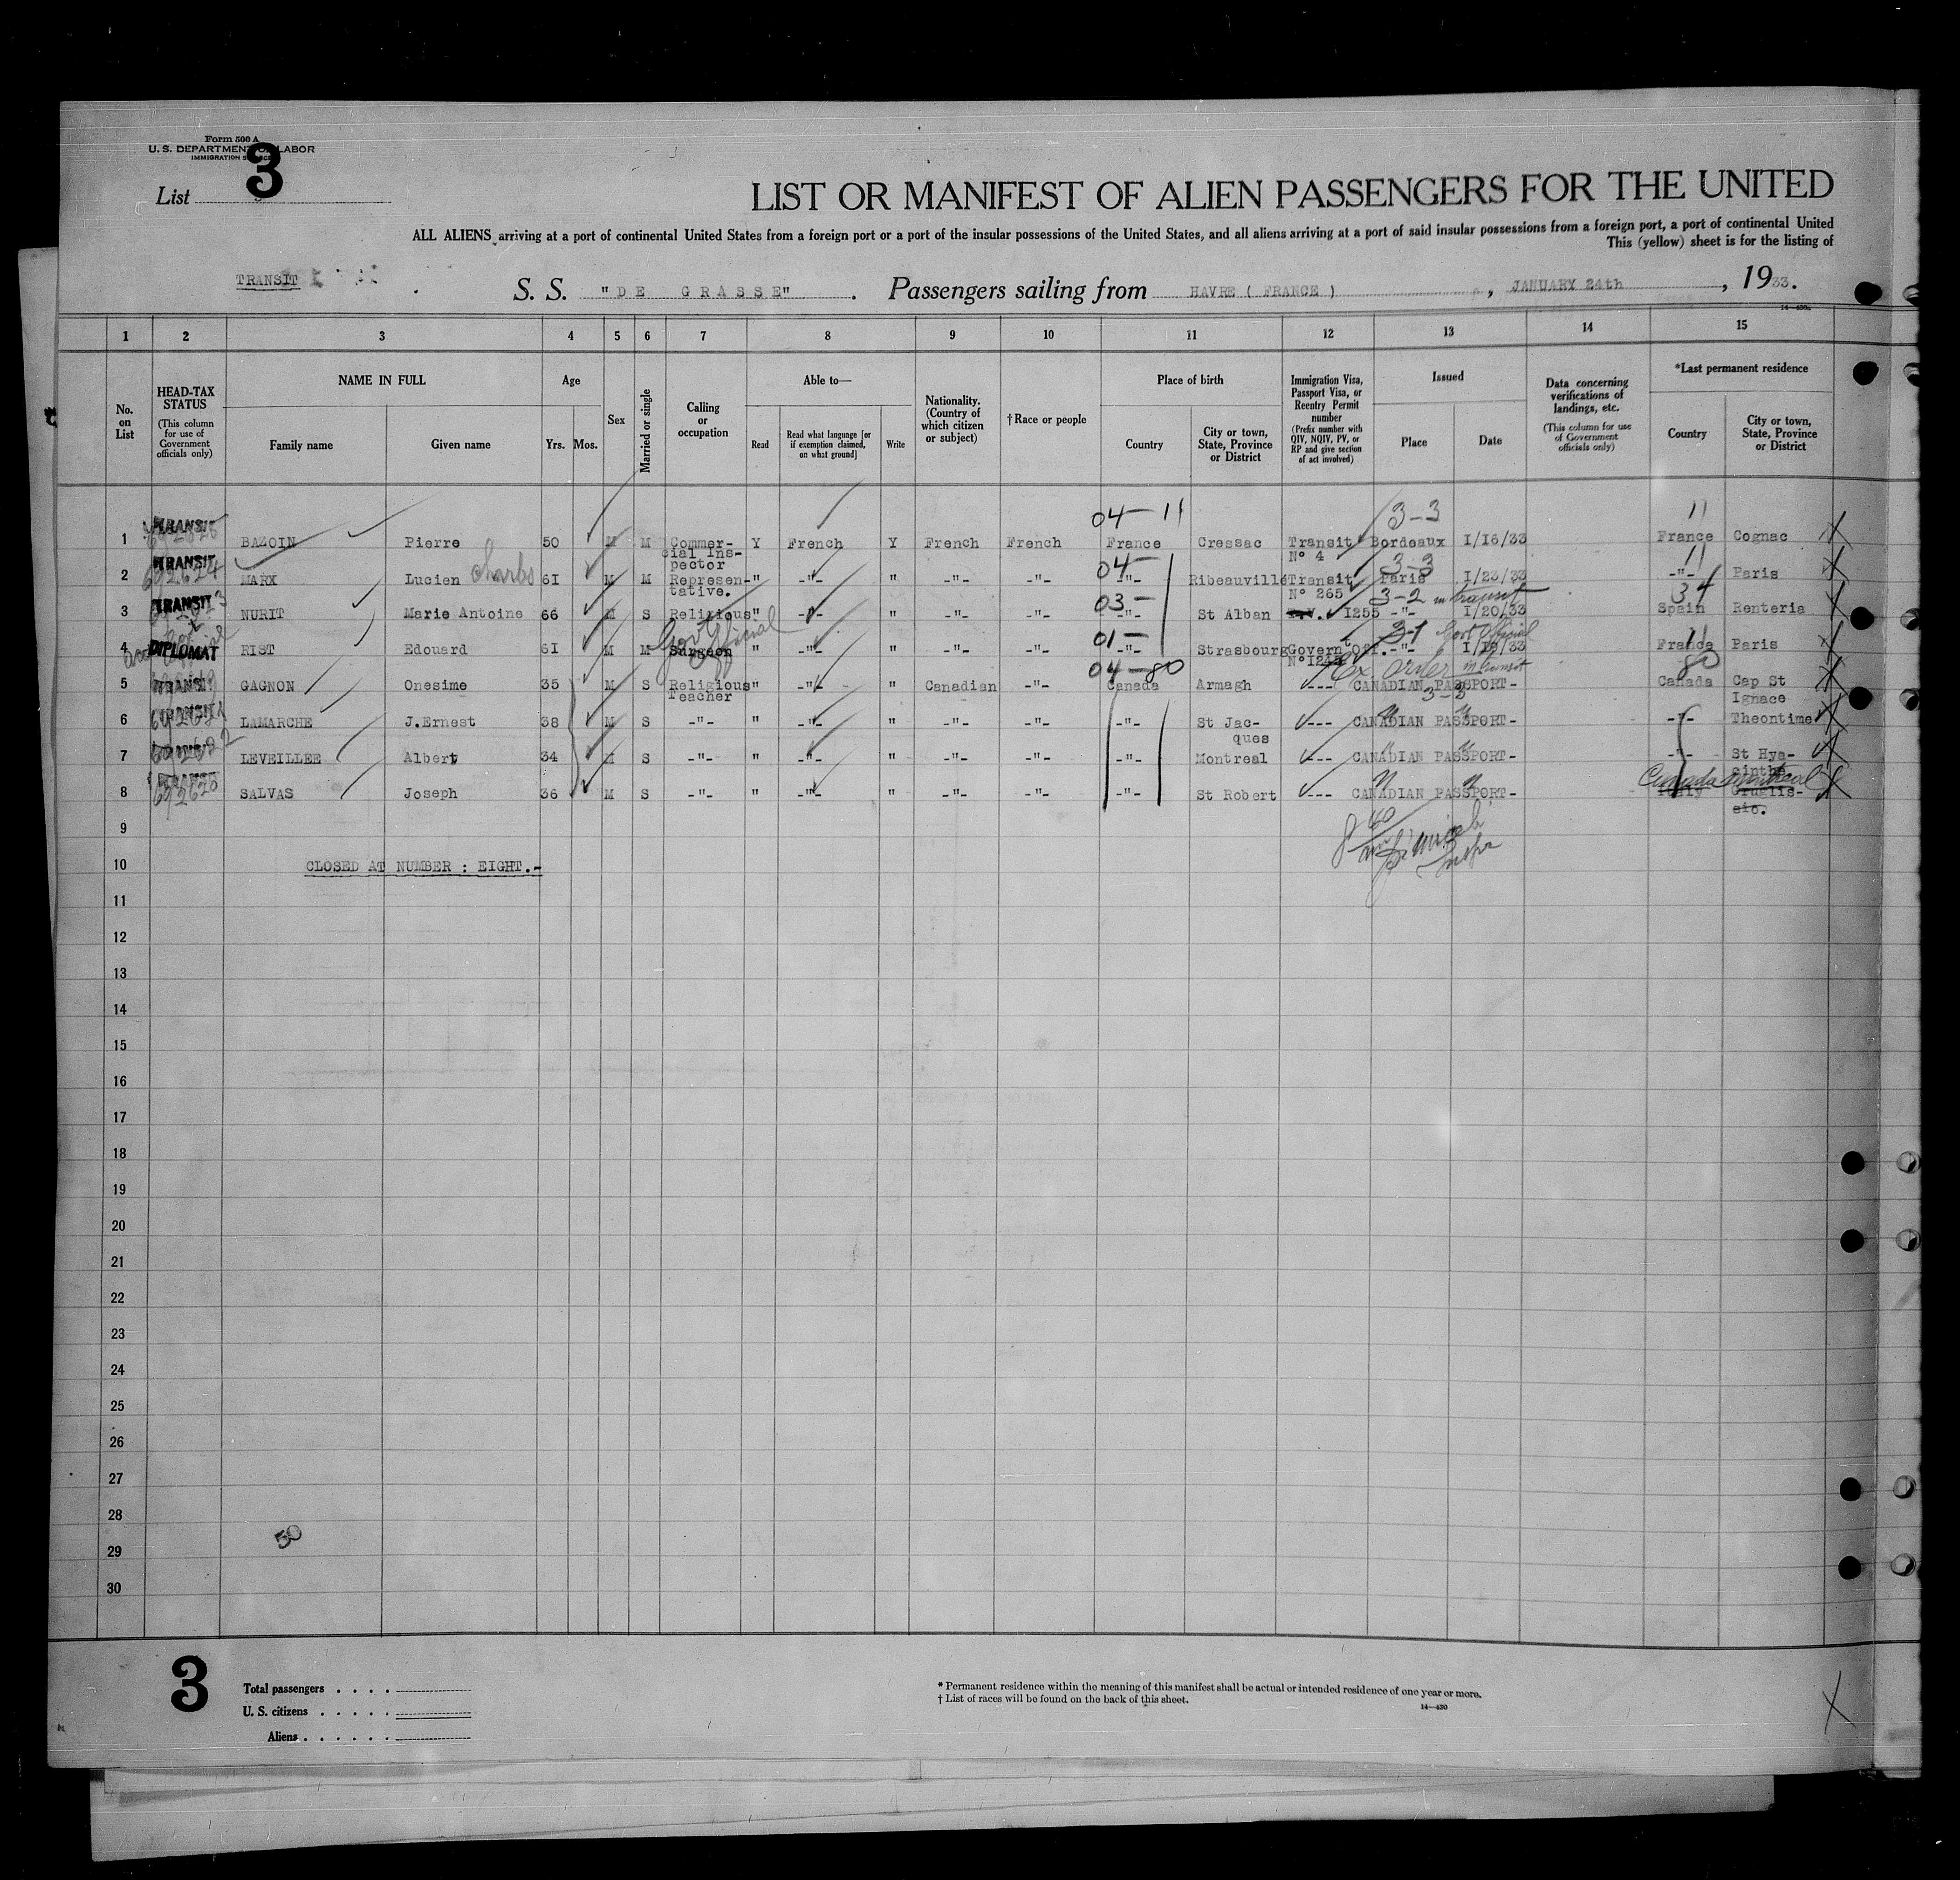 Form 500 A
U. S. DEPARTMENT OF LABOR
IMMIGRATION SERVICE
List 3
LIST OR MANIFEST OF ALIEN PASSENGERS FOR THE UNITED
ALL ALIENS arriving at a port of continental United States from a foreign port or a port of the insular possessions of the United States, and all aliens arriving at a port of said insular possessions from a foreign port, a port of continental United
This (yellow) sheet is for the listing of
TRANSIT
S. S. "DE GRASSE". Passengers sailing from HAVRE ( FRANCE ), JANUARY 24th, 1933.
14—430a
1 2 3 4 5 6 7 8 9 10 11 12 13 14 15
No. on List
HEAD-TAX STATUS
(This column for use of Government officials only)
NAME IN FULL
Family name
Given name
Age
Yrs. Mos.
Sex
Married or single
Calling or occupation
Able to—
Read
Read what language [or if exemption claimed, on what ground]
Write
Nationality. (Country of which citizen or subject)
† Race or people
Place of birth
Country
City or town, State, Province or District
Immigration Visa, Passport Visa, or Reentry Permit number
(Prefix number with QIV, NQIV, PV, or RP and give section of act involved)
Issued
Place
Date
Data concerning verifications of landings, etc.
(This column for use of Government officials only)
*Last permanent residence
Country
City or town, State, Province or District
04-11 3-3 11
1 TRANSIT BAZOIN Pierre 50 M M Commercial Inspector Y French Y French French France Cressac Transit N° 4 Bordeaux 1/16/33 France Cognac
04- 3-3 11
2 TRANSIT MARX Lucien Charles 61 M M Representative. " -"- " -"- -"- -"- Ribeauvillé Transit N° 265 Paris 1/23/33 -"- Paris
03- 3-2 in transit 34
3 TRANSIT NURIT Marie Antoine 66 M S Religious " -"- " -"- -"- -"- St Alban V. 1255 -"- 1/20/33 Spain Renteria
01- 3-1 Govt Official 11
4 DIPLOMAT RIST Edouard 61 M M Surgeon Govt Official " -"- " -"- -"- -"- Strasbourg Govern. Off. N°1245 -"- 1/19/33 France Paris
04-80 Ex. order in transit 80
5 TRANSIT GAGNON Onesime 35 M S Religious Teacher " -"- " Canadian -"- Canada Armagh --- CANADIAN PASSPORT- Canada Cap St Ignace
3-3
6 TRANSIT LAMARCHE J.Ernest 38 M S -"- " -"- " -"- -"- -"- St Jacques --- CANADIAN PASSPORT- -"- Theontime
7 LEVEILLEE Albert 34 M S -"- " -"- " -"- -"- -"- Montreal --- CANADIAN PASSPORT- -"- St Hyacinthe
8 TRANSIT SALVAS Joseph 36 M S -"- " -"- " -"- -"- -"- St Robert --- CANADIAN PASSPORT- Italy Canada Montreal
9
10 CLOSED AT NUMBER : EIGHT.-
11
12
13
14
15
16
17
18
19
20
21
22
23
24
25
26
27
28
50
29
30
3
Total passengers
U. S. citizens
Aliens
* Permanent residence within the meaning of this manifest shall be actual or intended residence of one year or more.
† List of races will be found on the back of this sheet.
14—430